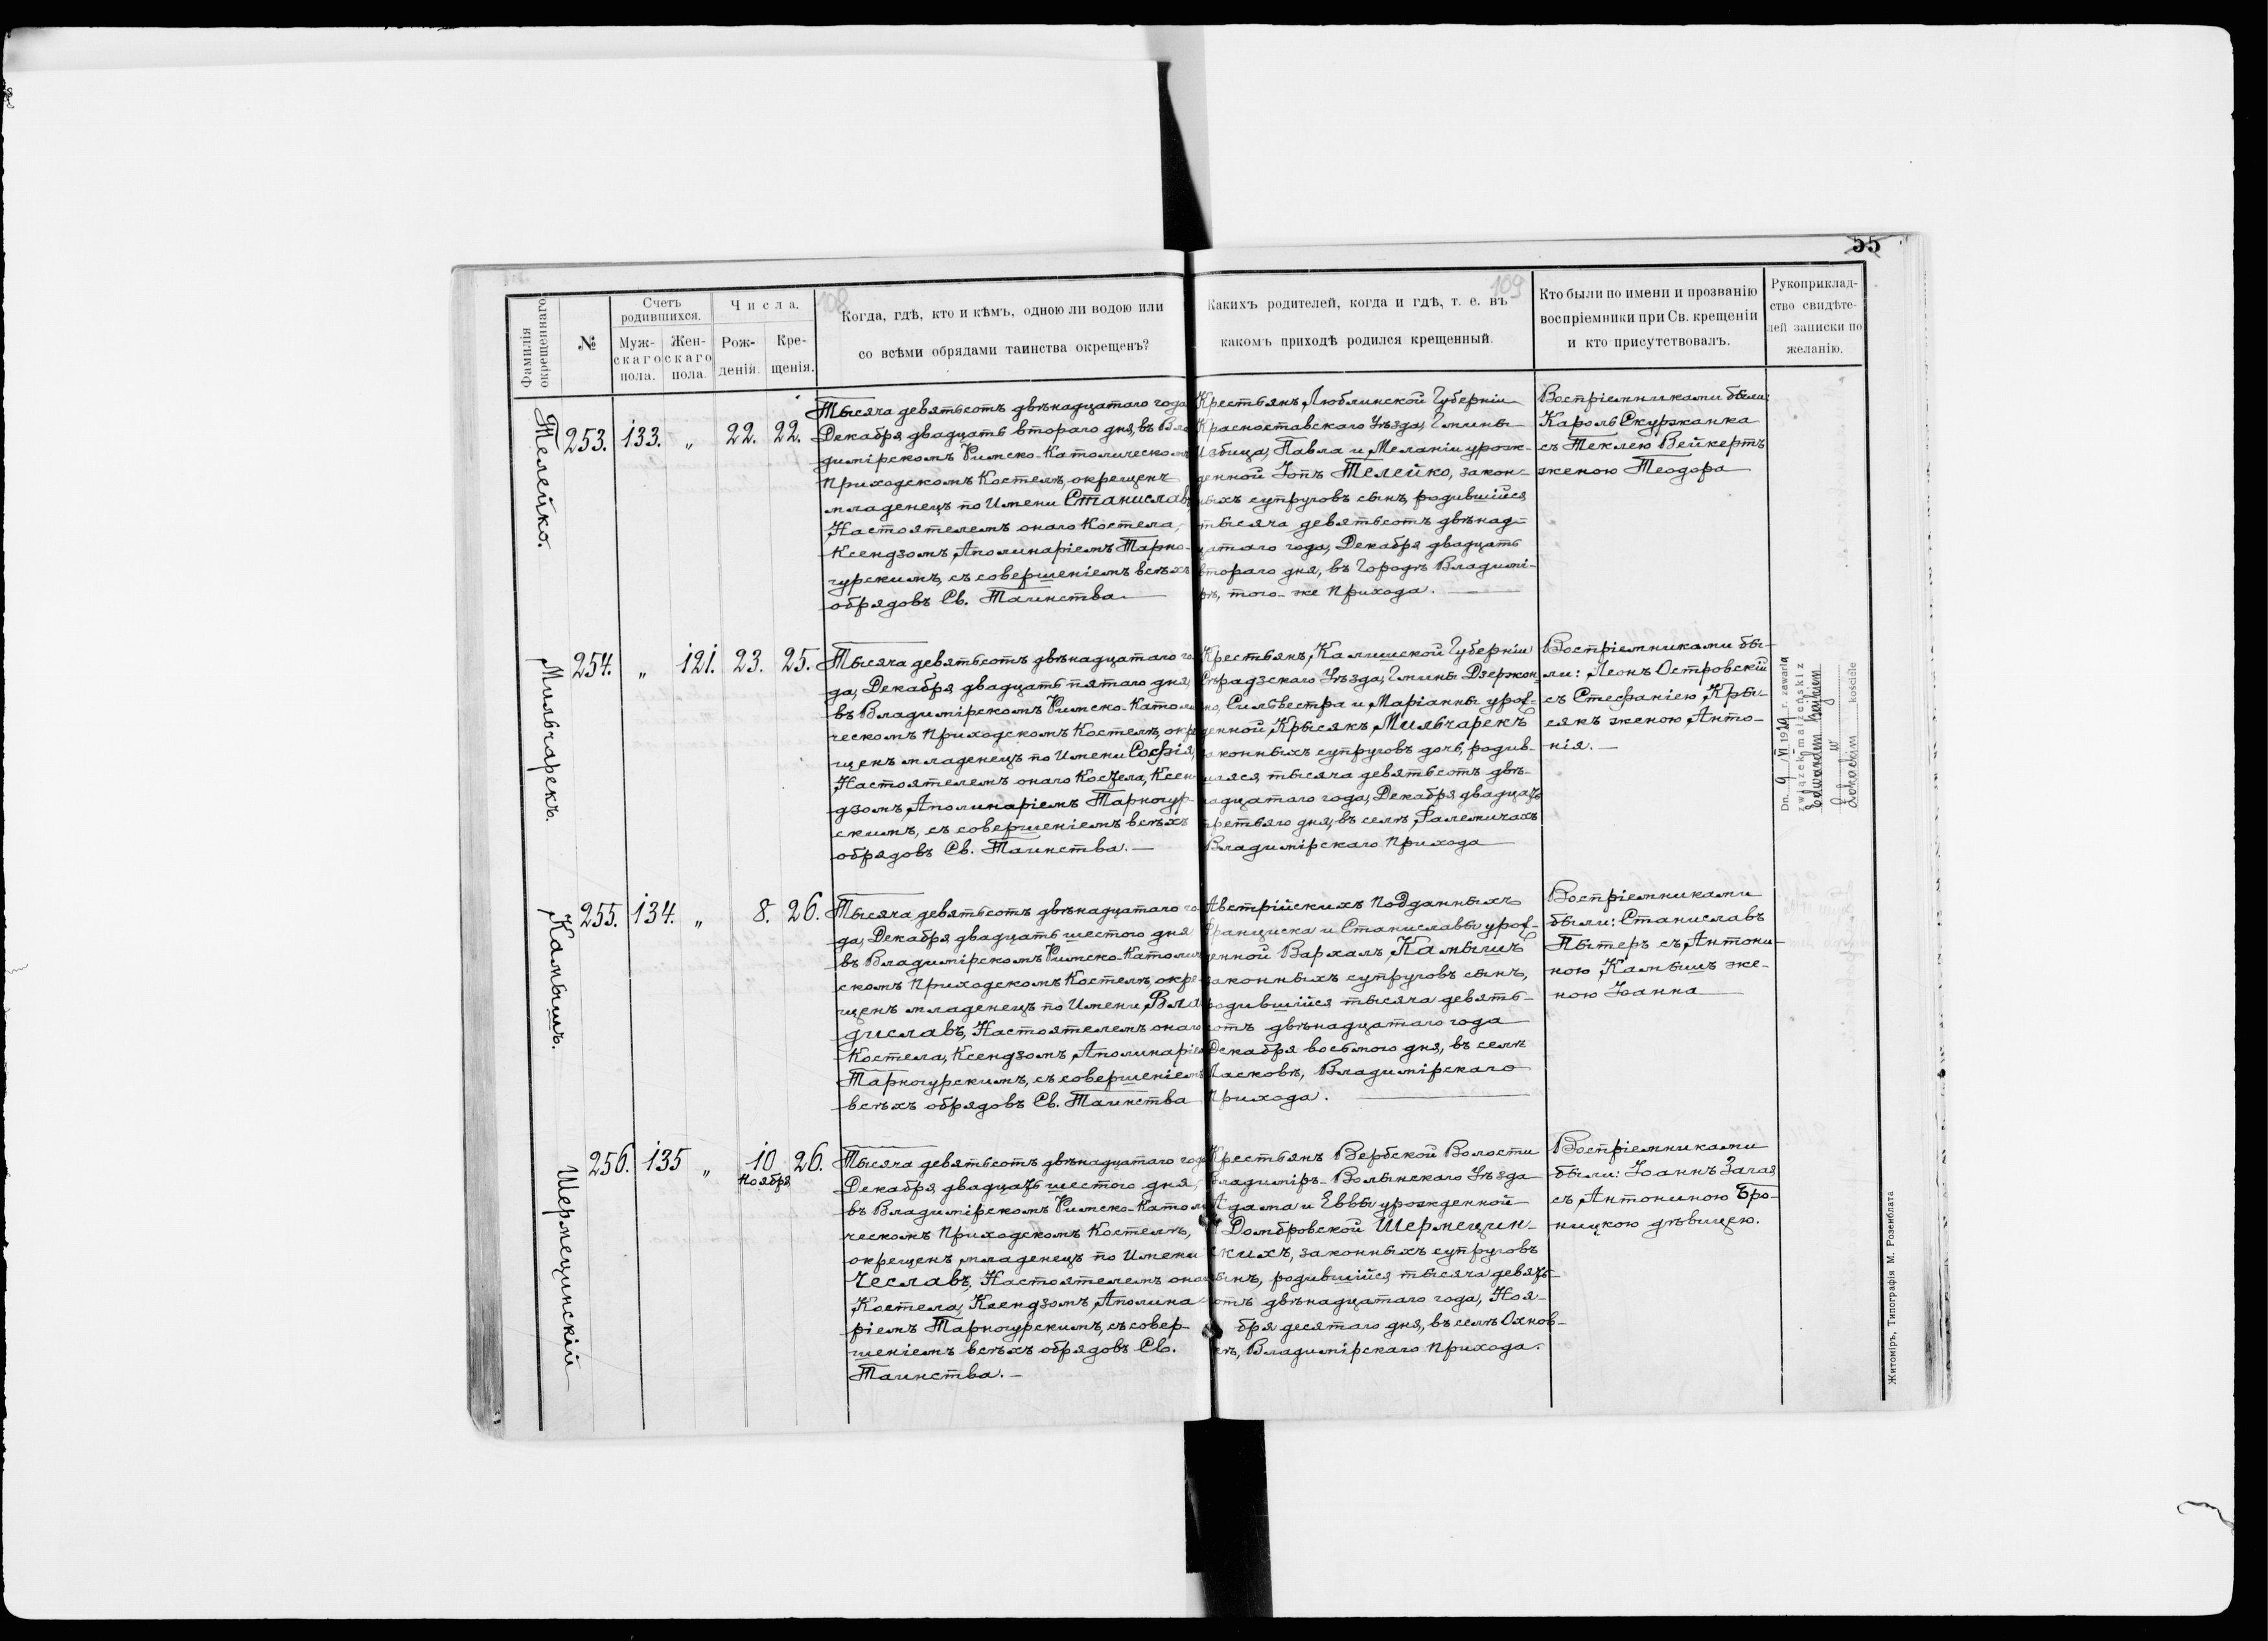 55
108
109
Фамилія окрещеннаго
№
Счетъ родившихся.
Муж-скаго пола.
Жен-скаго пола.
Числа.
Рож-денія.
Кре-щенія.
Когда, гдѣ, кто и кѣмъ, одною ли водою или
со всѣми обрядами таинства окрещенъ?
Какихъ родителей, когда и гдѣ, т. е. въ
какомъ приходѣ родился крещенный.
Кто были по имени и прозванію
воспріемники при Св. крещеніи
и кто присутствовалъ.
Рукоприклад-
ство свидѣте-
лей записки по
желанію.
Телейко.
253. 133. „ 22. 22.
Тысяча девятьсотъ двѣнадцатаго года
Декабря двадцать втораго дня, въ Вла
димірскомъ Римско-Католическомъ
Приходскомъ Костелѣ, окрещенъ
младенецъ по Имени Станиславъ
Настоятелемъ онаго Костела,
Ксендзомъ Аполинаріемъ Тарно-
гурскимъ, съ совершеніемъ всѣхъ
обрядовъ Св. Таинства
Крестьянъ, Люблинской Губерніи
Красноставскаго Уѣзда, Гмины
Избица, Павла и Меланіи урож-
денной Гопъ Телейко, закон-
ныхъ супруговъ сынъ, родившійся
тысяча девятьсотъ двѣнад-
цатаго года, Декабря двадцать
втораго дня, въ Городѣ Владимі-
рѣ, того-же Прихода.
Воспріемниками были:
Кароль Скуржанка
съ Теклею Вейкертъ
женою Теодора
Мильчарекъ.
254. „ 121. 23. 25.
Тысяча девятьсотъ двѣнадцатаго го
да, Декабря двадцать пятаго дня,
въ Владимірскомъ Римско-Католи
ческомъ Приходскомъ Костелѣ, окре
щенъ младенецъ по Имени Софія,
Настоятелемъ онаго Костела, Ксен
дзомъ Аполинаріемъ Тарногур-
скимъ, съ совершеніемъ всѣхъ
обрядовъ Св. Таинства.
Крестьянъ, Калишской Губерніи
Сѣрадзскаго Уѣзда, Гмины Дзержон-
но, Сильвестра и Маріанны урож-
денной Крысякъ Мильчарекъ
законныхъ супруговъ дочь, родив-
шаяся тысяча девятьсотъ двѣ-
надцатаго года, Декабря двадцать
третьяго дня, въ селѣ Фалемичахъ
Владимірскаго Прихода
Воспріемниками бы-
ли: Леонъ Островскій
съ Стефаніею Кры-
сякъ женою Анто-
нія.
Dn. 9 VI 1929 r. zawarła
związek małżeński z
Edwardem
w
Łokackim kościele
Камышъ.
255. 134. „ 8. 26.
Тысяча девятьсотъ двѣнадцатаго го
да, Декабря двадцать шестого дня
въ Владимірскомъ Римско-Католиче
скомъ Приходскомъ Костелѣ, окре
щенъ младенецъ по Имени Вла
диславъ, Настоятелемъ онаго
Костела, Ксендзомъ Аполинаріемъ
Тарногурскимъ, съ совершеніемъ
всѣхъ обрядовъ Св. Таинства
Австрійскихъ Подданныхъ
Франциска и Станиславы урож-
денной Вархалъ Камышъ
законныхъ супруговъ сынъ,
родившійся тысяча девять-
сотъ двѣнадцатаго года
Декабря восьмого дня, въ селѣ
Ласковѣ, Владимірскаго
Прихода.
Воспріемниками
были: Станиславъ
Пытеръ съ Антони-
ною Камышъ же-
ною Іоанна
Шермецинскій
256. 135 „ 10 Ноября 26.
Тысяча девятьсотъ двѣнадцатаго года
Декабря двадцать шестого дня,
въ Владимірскомъ Римско-Католи
ческомъ Приходскомъ Костелѣ,
окрещенъ младенецъ по Имени
Чеславъ, Настоятелемъ онаго
Костела, Ксендзомъ Аполина
ріемъ Тарногурскимъ, съ совер-
шеніемъ всѣхъ обрядовъ Св.
Таинства.
Крестьянъ Вербской Волости
Владиміръ-Волынскаго Уѣзда
Адама и Еввы урожденной
Домбровской Шермецин-
скихъ, законныхъ супруговъ
сынъ, родившійся тысяча девять-
сотъ двѣнадцатаго года, Ноя-
бря десятаго дня, въ селѣ Охнов-
кѣ, Владимірскаго Прихода.
Воспріемниками
были: Іоаннъ Загая
съ Антониною Бро-
ницкою дѣвицею.
Житоміръ, Типографія М. Розенблата